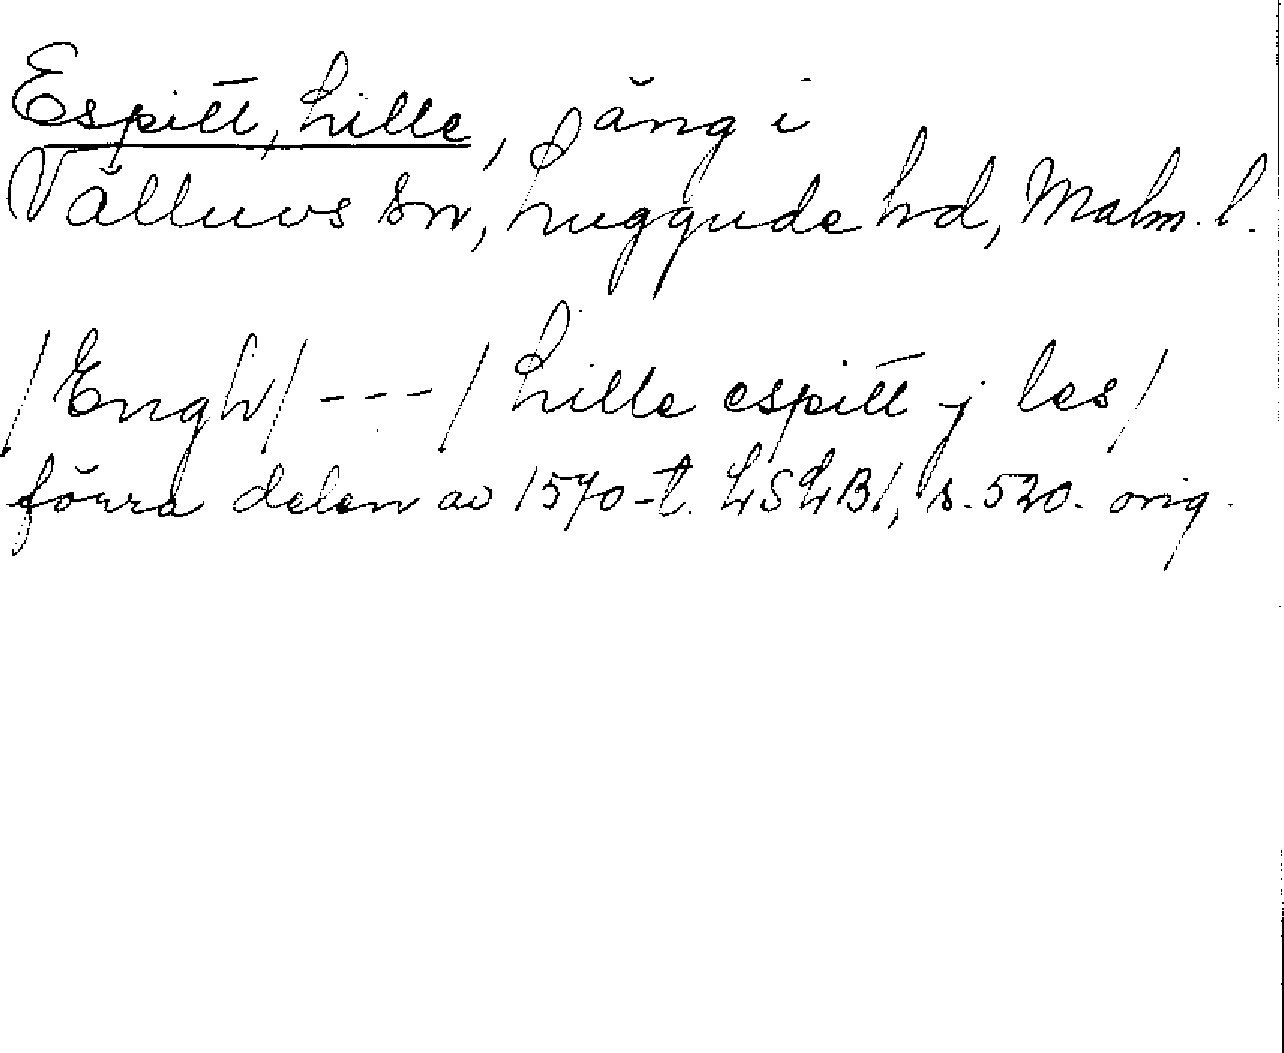 Espitt, Lille, äng i
Välluvs sn, Luggude hd, Malm. l.
/Engh/ --- / Lille espitt j les/
förra delen av 1570-t. LSLB1, s. 520. orig.